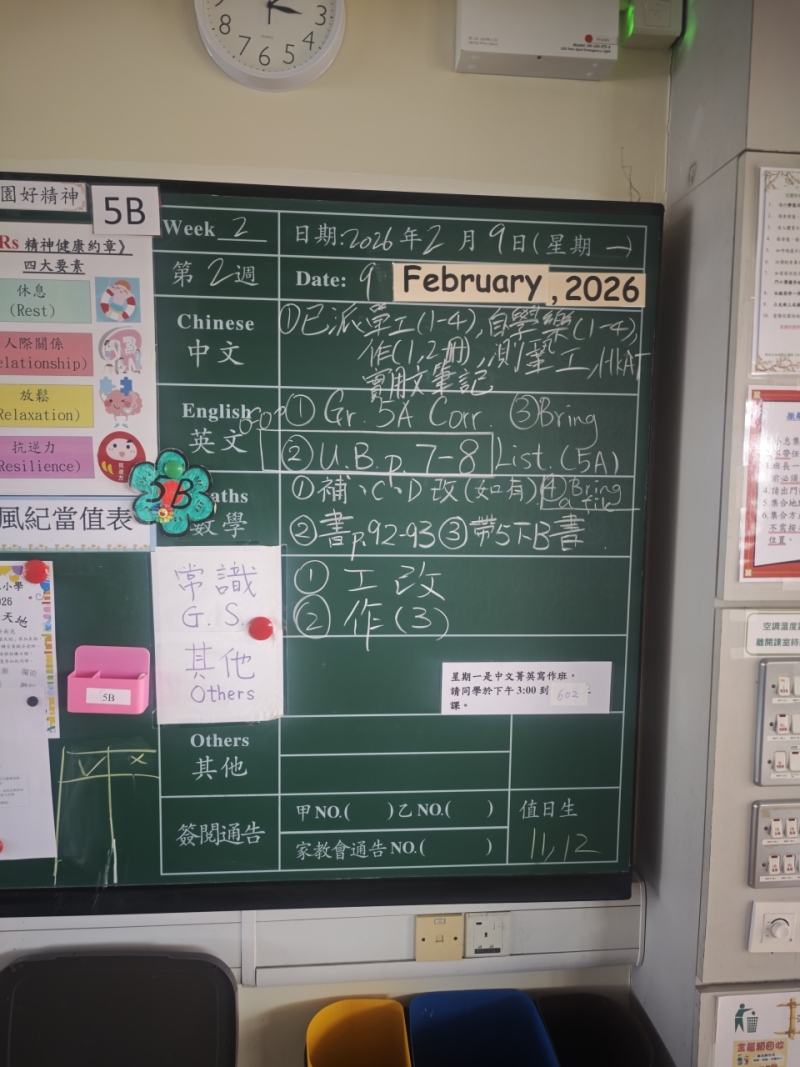 3
4
5
6
7
8
園好精神
5B
Rs 精神健康約章》
四大要素
休息
(Rest)
人際關係
elationship)
放鬆
Relaxation)
抗逆力
Resilience)
5B
風紀當值表
Week 2
日期:2026年2月9日(星期一)
第2週
Date: 9 February, 2026
Chinese
中文
①已派單工(1-4),自學樂(1-4),
作(1,2冊),測,工,HKAT
實用文筆記
English
英文
① Gr. 5A Corr. ③Bring
② U.B.p. 7-8 List (5A)
aths
數學
①補、C、D改(如有)④Bring
a file
②書p.92-93③帶5下B書
常識
G.S.
① 工改
② 作(3)
其他
Others
星期一是中文菁英寫作班。
請同學於下午3:00到602
課。
5B
Others
其他
簽閱通告
甲NO.( )乙NO.( )
家教會通告NO.( )
值日生
11,12
✓ ×
小學
026
天地
空調溫度
離開課室時